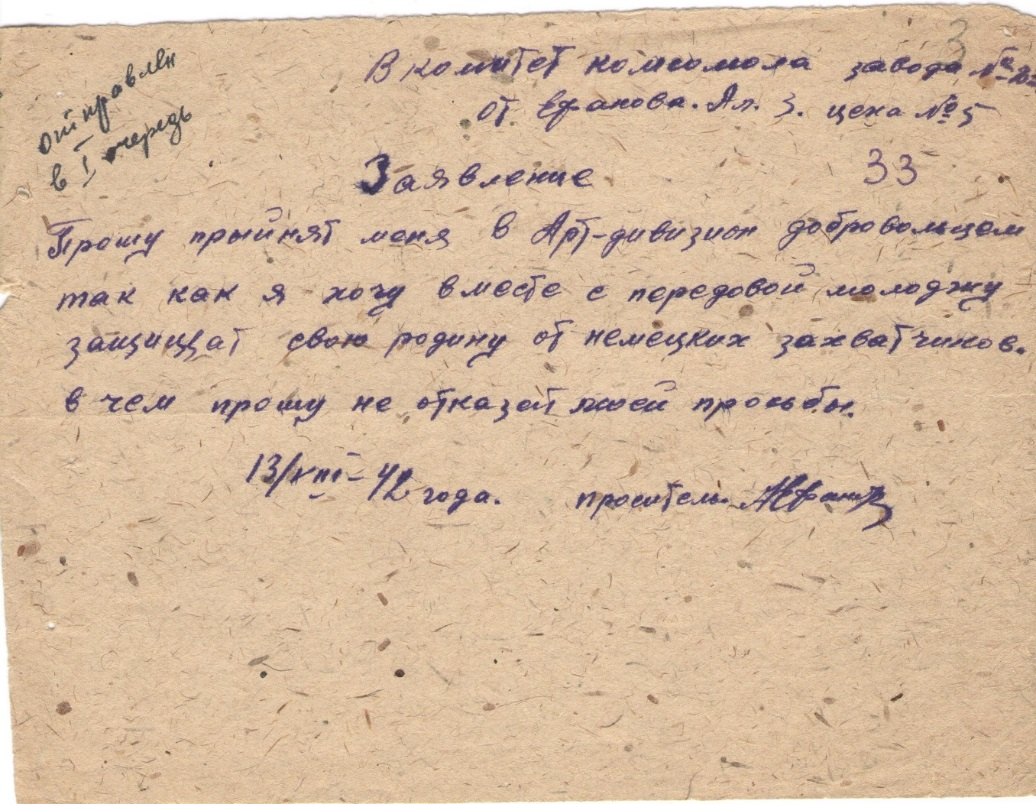 3
отправлен
в I очередь
В комитет комсомола завода №
от Ефанова. Ал. З. цеха № 5
Заявление
33
Прошу прыйнят меня в Арт-дивизион добровольцем
так как я хочу вместе с передовой молоджу
защищат свою родину от немецких захватчиков.
в чем прошу не отказат моей просьбы.
13/VIII-42 года. проситель